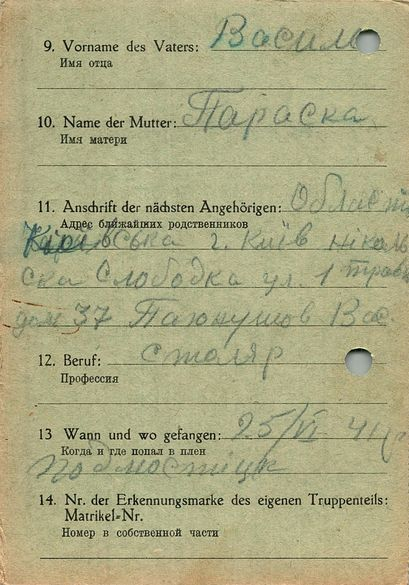 9. Vorname des Vaters: Василь
Имя отца
10. Name der Mutter: Параска
Имя матери
11. Anschrift der nächsten Angehörigen: Область
Адрес ближайших родственников
Київська г. Київ Нікаль
ска Слободка ул. 1 трав
дом 37 Вас.
12. Beruf: столяр
Профессия
13 Wann und wo gefangen: 25/VI 41
Когда и где попал в плен
14. Nr. der Erkennungsmarke des eigenen Truppenteils:
Matrikel-Nr.
Номер в собственной части